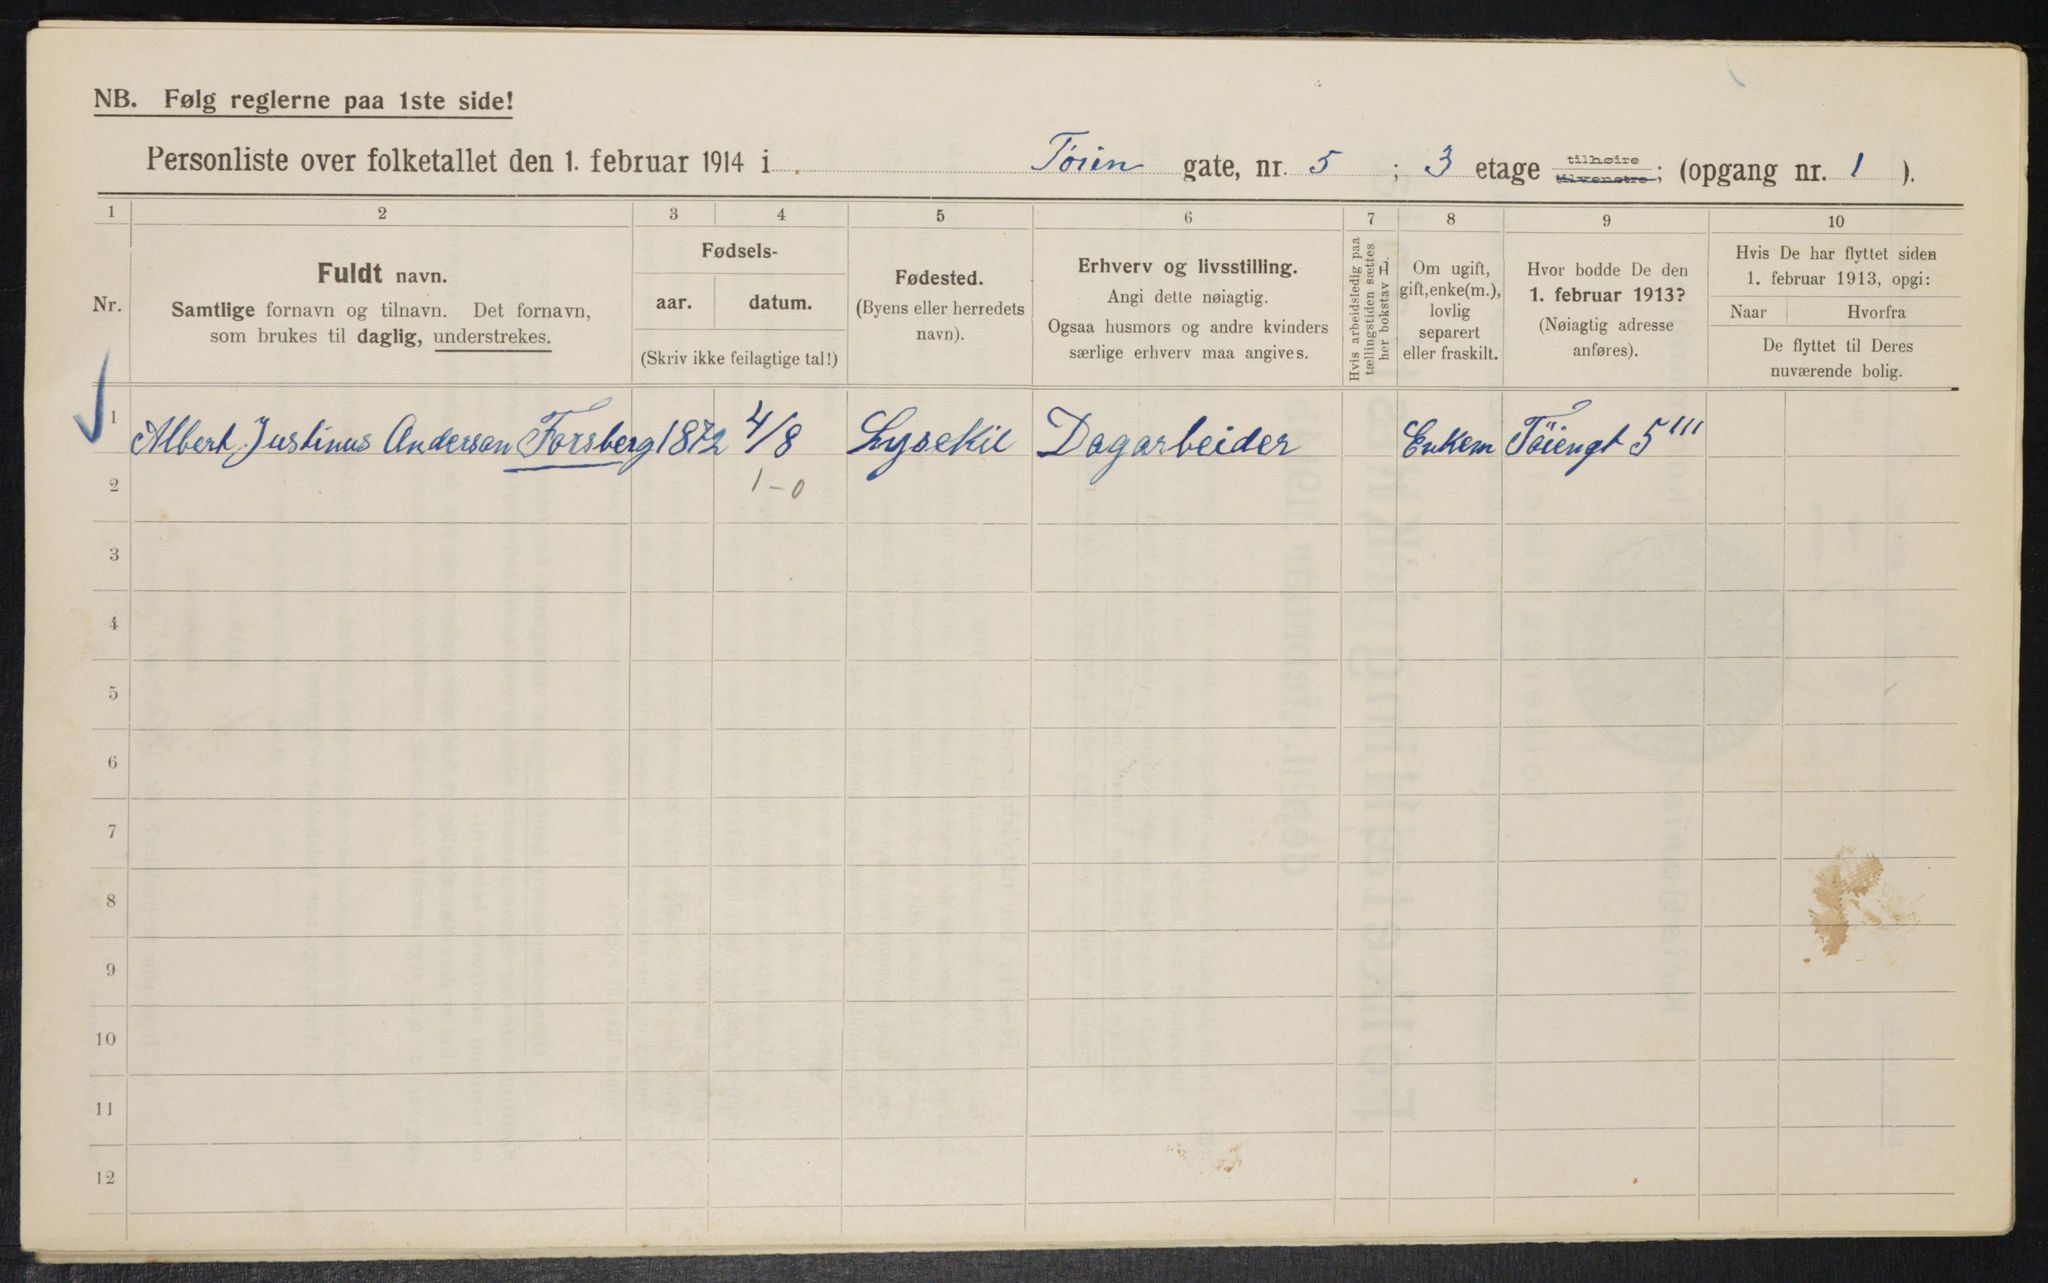 NB. Følg reglerne paa 1ste side!
Personliste over folketallet den 1. februar 1914 i Töien gate, nr. 5 ; 3 etage tilhøire tilvenstre; (opgang nr. 1 ).
1 2 3 4 5 6 7 8 9 10
Nr.
Fuldt navn.
Samtlige fornavn og tilnavn. Det fornavn,
som brukes til daglig, understrekes.
Fødsels-
aar. datum.
(Skriv ikke feilagtige tal!)
Fødested.
(Byens eller herredets
navn).
Erhverv og livsstilling.
Angi dette nøiagtig.
Ogsaa husmors og andre kvinders
særlige erhverv maa angives.
Hvis arbeidsledig paa
tællingstiden sættes
her bokstav H.
Om ugift,
gift, enke(m.),
lovlig
separert
eller fraskilt.
Hvor bodde De den
1. februar 1913?
(Nøiagtig adresse
anføres).
Hvis De har flyttet siden
1. februar 1913, opgi:
Naar Hvorfra
De flyttet til Deres
nuværende bolig.
1 Albert Justinus Anderson Forsberg 1872 4/8 Lysekil Dagarbeider Enkem Töiengt 5'''
2 1-0
3
4
5
6
7
8
9
10
11
12